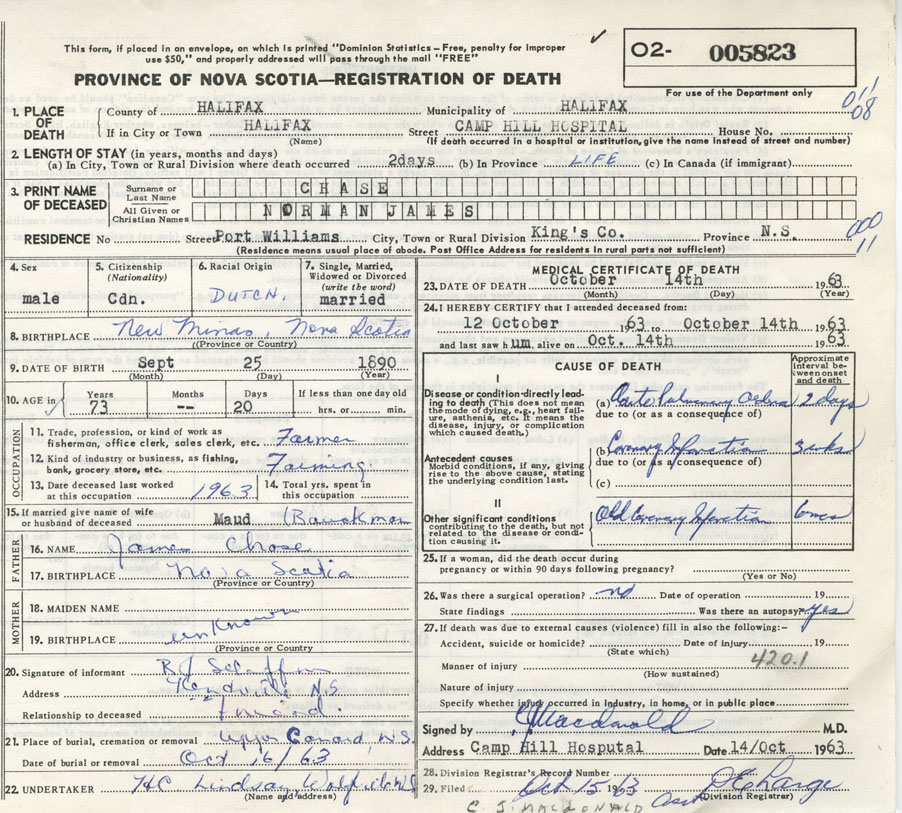 This form, if placed in an envelope, on which is printed "Dominion Statistics – Free, penalty for improper
use $50," and properly addressed will pass through the mail "FREE"
O2- 005823
PROVINCE OF NOVA SCOTIA—REGISTRATION OF DEATH
For use of the Department only
011
08
1. PLACE OF DEATH
County of HALIFAX Municipality of HALIFAX
If in City or Town HALIFAX Street CAMP HILL HOSPITAL House No.
(Name) (If death occurred in a hospital or institution, give the name instead of street and number)
2. LENGTH OF STAY (in years, months and days)
(a) In City, Town or Rural Division where death occurred 2days (b) In Province LIFE (c) In Canada (if immigrant)
3. PRINT NAME OF DECEASED
Surname or Last Name CHASE
All Given or Christian Names NORMAN JAMES
000
11
RESIDENCE No Street Port Williams City, Town or Rural Division King's Co. Province N.S.
(Residence means usual place of abode. Post Office Address for residents in rural parts not sufficient)
4. Sex
male
5. Citizenship
(Nationality)
Cdn.
6. Racial Origin
DUTCH.
7. Single, Married,
Widowed or Divorced
(write the word)
married
8. BIRTHPLACE New Minas, Nova Scotia
(Province or Country)
9. DATE OF BIRTH Sept 25 1890
(Month) (Day) (Year)
10. AGE in Years 73 Months -- Days 20 If less than one day old
hrs. or min.
OCCUPATION
11. Trade, profession, or kind of work as
fisherman, office clerk, sales clerk, etc. Farmer
12. Kind of industry or business, as fishing,
bank, grocery store, etc. Farming
13. Date deceased last worked
at this occupation 1963
14. Total yrs. spent in
this occupation
15. If married give name of wife
or husband of deceased Maud
FATHER
16. NAME James Chase
17. BIRTHPLACE Nova Scotia
(Province or Country)
MOTHER
18. MAIDEN NAME
unknown
19. BIRTHPLACE
(Province or Country)
20. Signature of informant
Address Kentville N.S
Relationship to deceased Friend
21. Place of burial, cremation or removal Upper Canard, N.S.
Date of burial or removal Oct 16/63
22. UNDERTAKER HC Lindsay, Wolfville NS
(Name and address)
MEDICAL CERTIFICATE OF DEATH
23. DATE OF DEATH October 14th 1963
(Month) (Day) (Year)
24. I HEREBY CERTIFY that I attended deceased from:
12 October 1963 to October 14th 1963
and last saw h um. alive on Oct. 14th 1963
CAUSE OF DEATH
Approximate
interval be-
tween onset
and death
I
Disease or condition directly lead-
ing to death (This does not mean
the mode of dying, e.g., heart fail-
ure, asthenia, etc. It means the
disease, injury, or complication
which caused death.)
(a) 2 days
due to (or as a consequence of)
Antecedent causes
Morbid conditions, if any, giving
rise to the above cause, stating
the underlying condition last.
(b) Coronary Infarction
due to (or as a consequence of)
(c)
II
Other significant conditions
contributing to the death, but not
related to the disease or condi-
tion causing it.
Old Coronary Infarction
25. If a woman, did the death occur during
pregnancy or within 90 days following pregnancy?
(Yes or No)
26. Was there a surgical operation? no Date of operation 19
State findings Was there an autopsy? yes
27. If death was due to external causes (violence) fill in also the following:–
Accident, suicide or homicide? Date of injury 19
(State which)
420.1
Manner of injury
(How sustained)
Nature of injury
Specify whether injury occurred in industry, in home, or in public place
Signed by CJMacdonald M.D.
Address Camp Hill Hosputal Date 14/Oct 1963
28. Division Registrar's Record Number
29. Filed Oct 15 1963
(Division Registrar)
C. J. MACDONALD